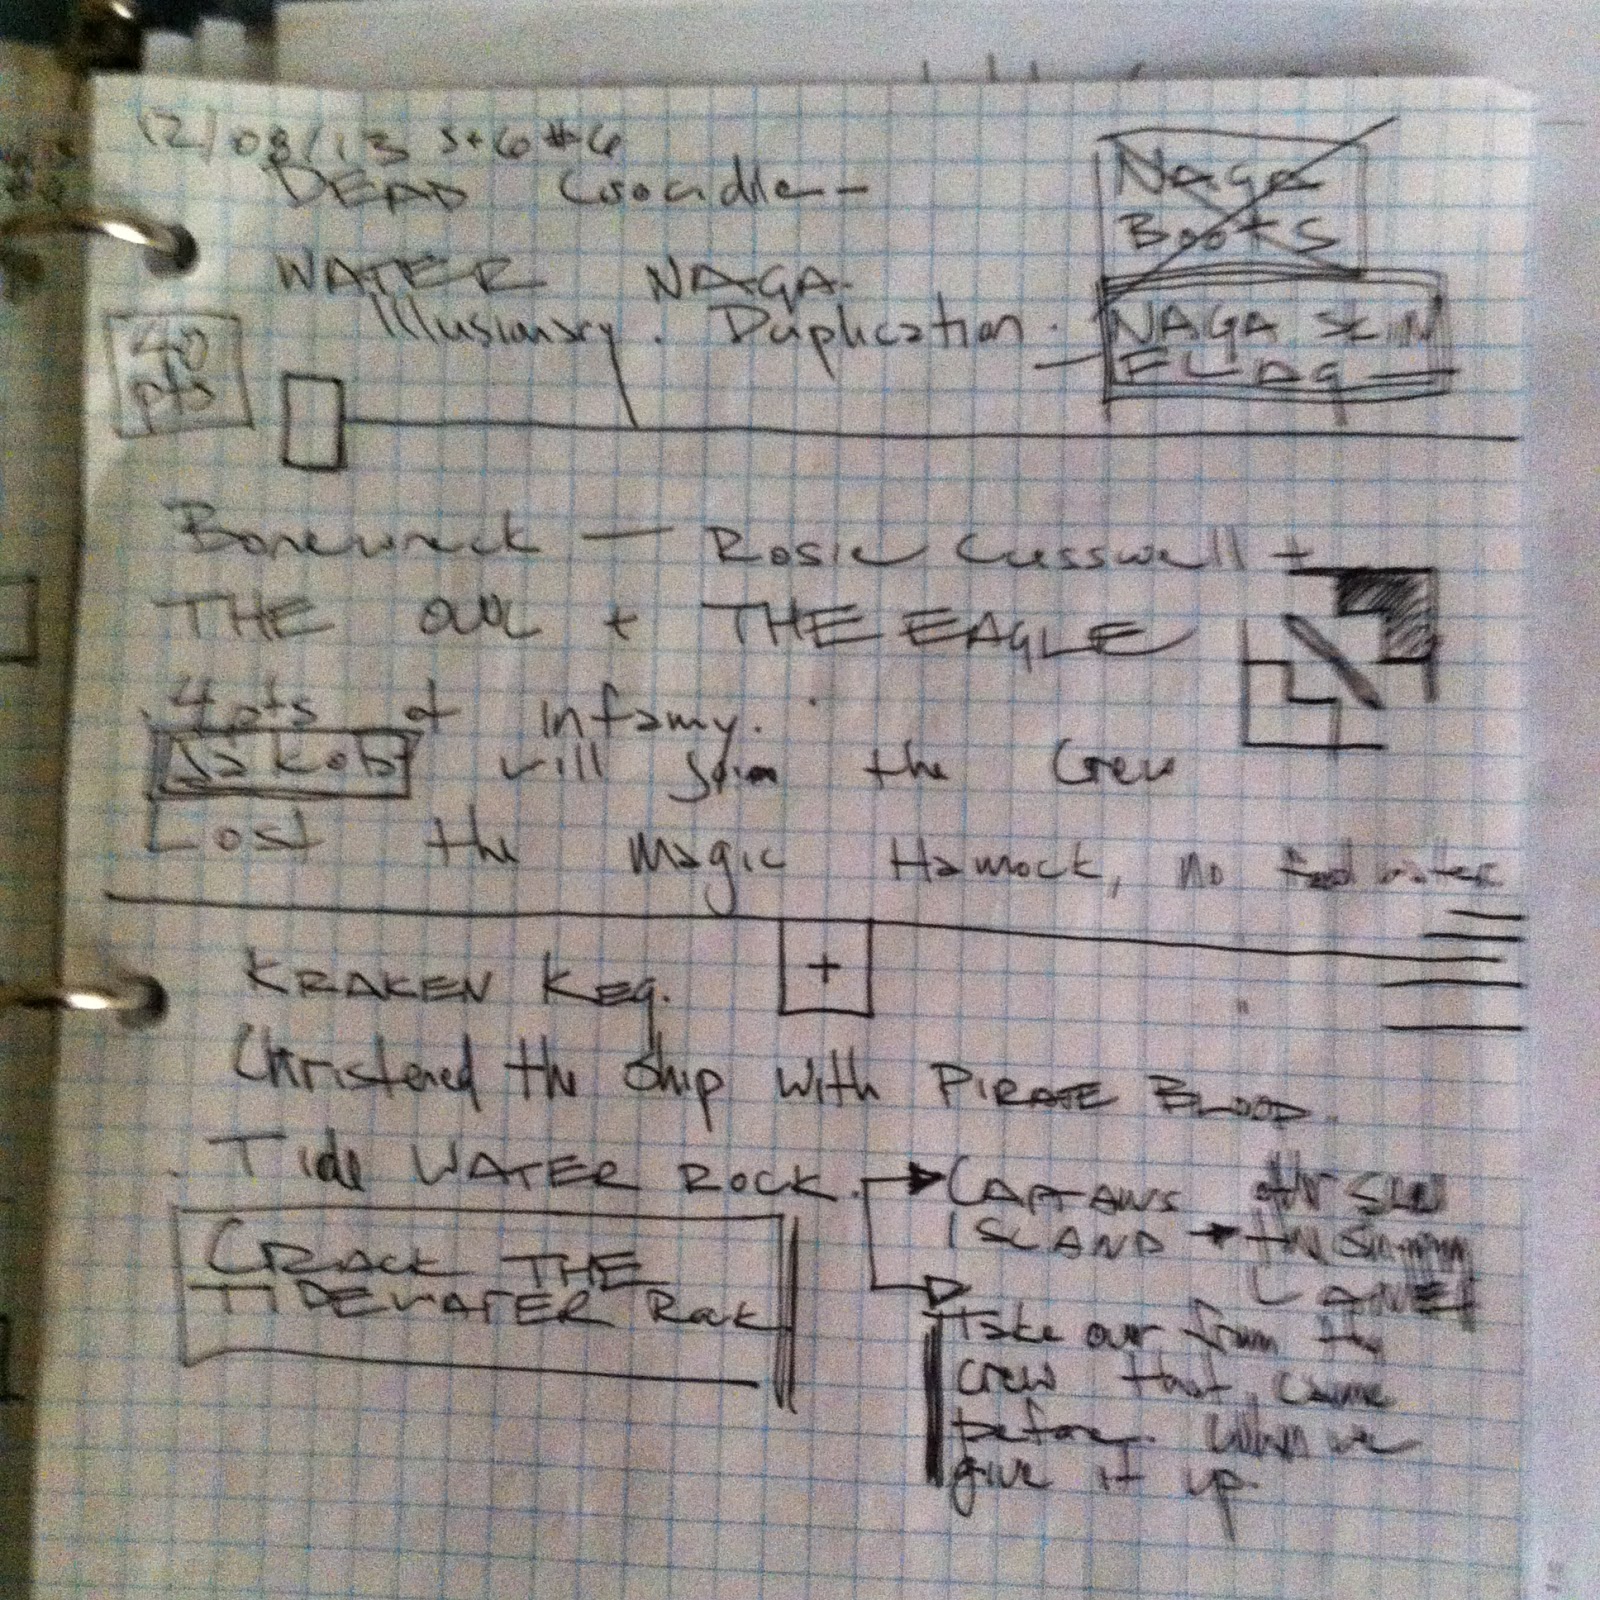 12/08/13 S+6 #6
DEAD Crocodile -
Naga
Boots
WATER NAGA.
Illusionary. Duplication.
NAGA SKIN
FLAG
40
pts
Bonewrack — Rosie Cusswell +
THE OWL + THE EAGLE
4 pts of infamy.
Jakob will join the Crew
Lost the magic Hamock, no food water
KRAKEN KEG.
+
Christened the ship with PIRATE BLOOD.
Tide WATER ROCK.
CRACK THE
TIDEWATER Rock
CAPTAINS
ISLAND
the
Take over from the
crew that came
before. When we
give it up.